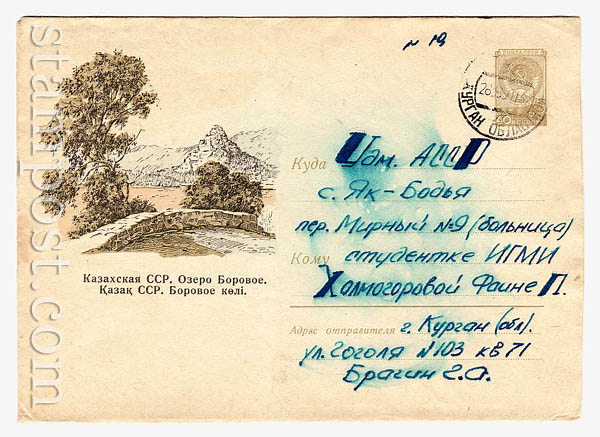 № 19
ПОЧТА СССР
КУРГАН ОБЛ
Куда Удм. АССР
с. Як-Бодья
пер. Мирный №9 (больница)
Кому студентке ИГМИ
Холмогоровой Фаине П.
Адрес отправителя г. Курган (обл).
ул. Гоголя №103 кв 71
Брагин Г.А.
Казахская ССР. Озеро Боровое.
Қазақ ССР. Боровое көлі.
stampost.com